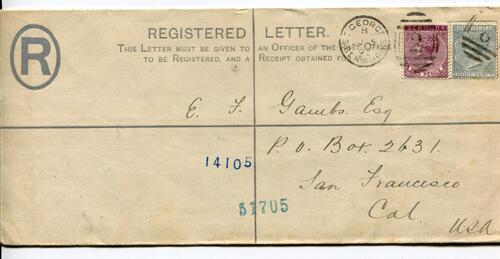 R
REGISTERED LETTER.
THIS LETTER MUST BE GIVEN TO AN OFFICER OF THE OFFICE
TO BE REGISTERED, AND A RECEIPT OBTAINED FOR
ST GEORGE
BERMUDA
E. F. Gambs. Esq
P. O. Box. 2631.
San Francisco
Cal.
USA
14105
51705